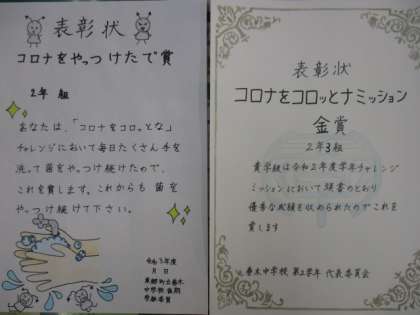 表彰状
コロナをやっつけたで賞
2年 組
あなたは、「コロナをコロっとな」
チャレンジにおいて毎日たくさん手を
洗って菌をやっつけ続けたので、
これを賞します。これからも 菌を
やっつけ続けて下さい。
令和3年度
月 日
中学校 後期
表彰状
コロナをコロッとナミッション
金賞
2年3組
貴学級は令和2年度学年チャレンジ
ミッションにおいて頭書のとおり
優秀な成績を収められたのでこれを
賞します
春木中学校 第2学年 代表委員会